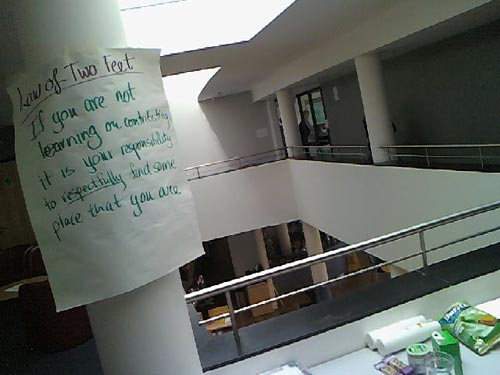 Law of Two Feet
If you are not
learning or contributing
it is your responsibility
to respectfully find some
place that you are.